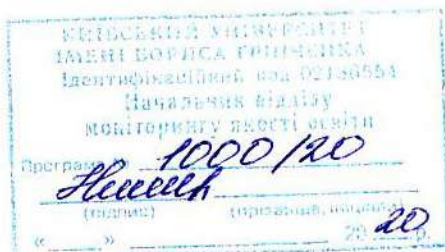 КИЇВСЬКИЙ УНІВЕРСИТЕТ
ІМЕНІ БОРИСА ГРІНЧЕНКА
Ідентифікаційний код 02136554
Начальник відділу
моніторингу якості освіти
Програма № 1000/20
(підпис) (прізвище, ініціали)
« » 2020 р.